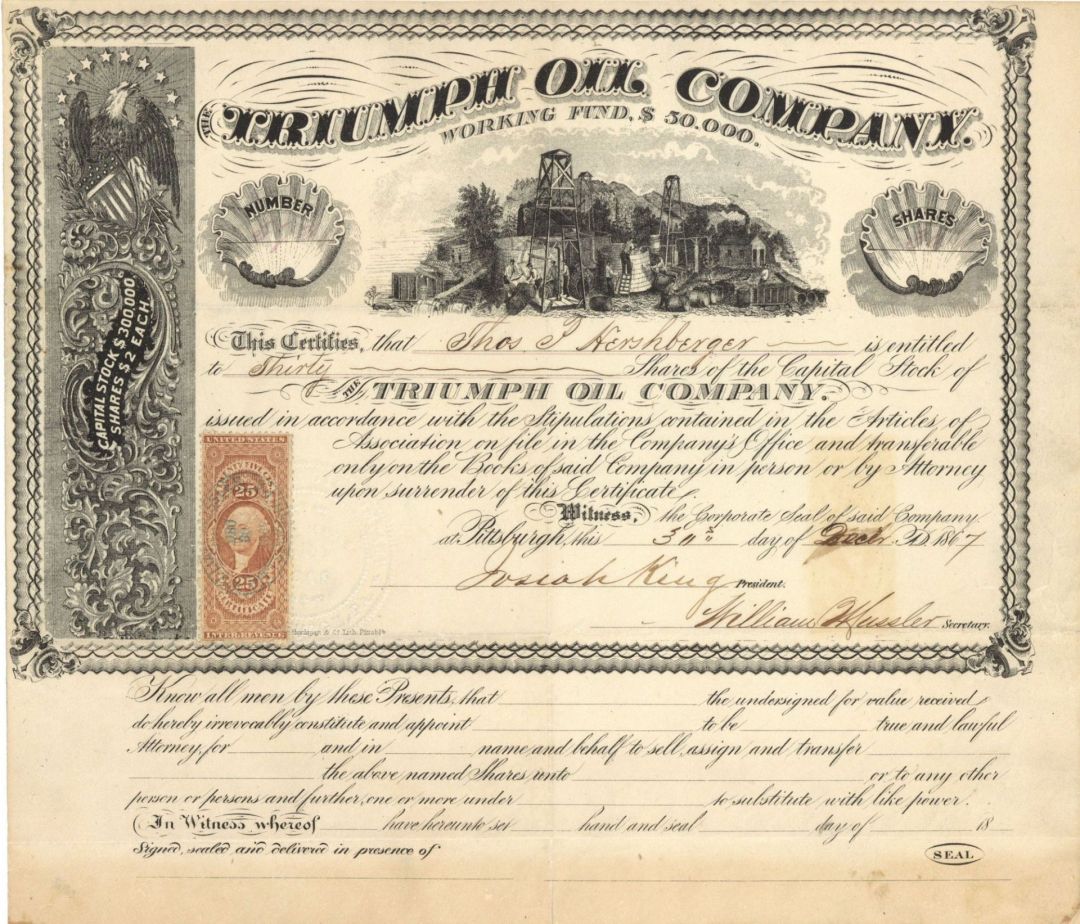 THE TRIUMPH OIL COMPANY.
WORKING FUND, $ 50.000.
NUMBER
SHARES
CAPITAL STOCK $300,000
SHARES $2 EACH.
This Certifies, that Thos J Hershberger is entitled
to Thirty Shares of the Capital Stock of
THE TRIUMPH OIL COMPANY.
issued in accordance with the Stipulations contained in the Articles of
Association on file in the Company's Office and transferable
only on the Books of said Company in person or by Attorney
upon surrender of this Certificate
Witness, the Corporate Seal of said Company
at Pittsburgh, this day of Decr AD 1867
Josiah King President.
William Secretary.
UNITED STATES
TWENTY FIVE CTS
25
25 25
CERTIFICATE
INTER. REVENUE
& Co. Lith. Pittsbg
Know all men by these Presents, that the undersigned for value received
do hereby irrevocably constitute and appoint to be true and lawful
Attorney, for and in name and behalf to sell, assign and transfer
the above named Shares unto or to any other
person or persons and further, one or more under to substitute with like power.
In Witness whereof have hereunto set hand and seal day of 18
Signed, sealed and delivered in presence of
SEAL